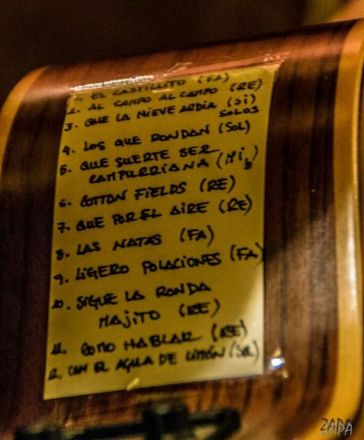 1. EL CASTILLITO (FA)
2. AL CAMPO AL CAMPO (RE)
3. QUE LA NIEVE ARDIA (Si)
SOLOS
4. LOS QUE RONDAN (SOL)
5. QUE SUERTE SER
CAMPURRIANA (Mi b)
6. COTTON FIELDS (RE)
7. QUE POR EL AIRE (RE)
8. LAS NATAS (FA)
9. LIGERO POLACIONES (FA)
10. SIGUE LA RONDA
MAJITO (RE)
11. COMO HABLAR (RE)
12. CON EL AGUA DE LIMÓN (SOL)